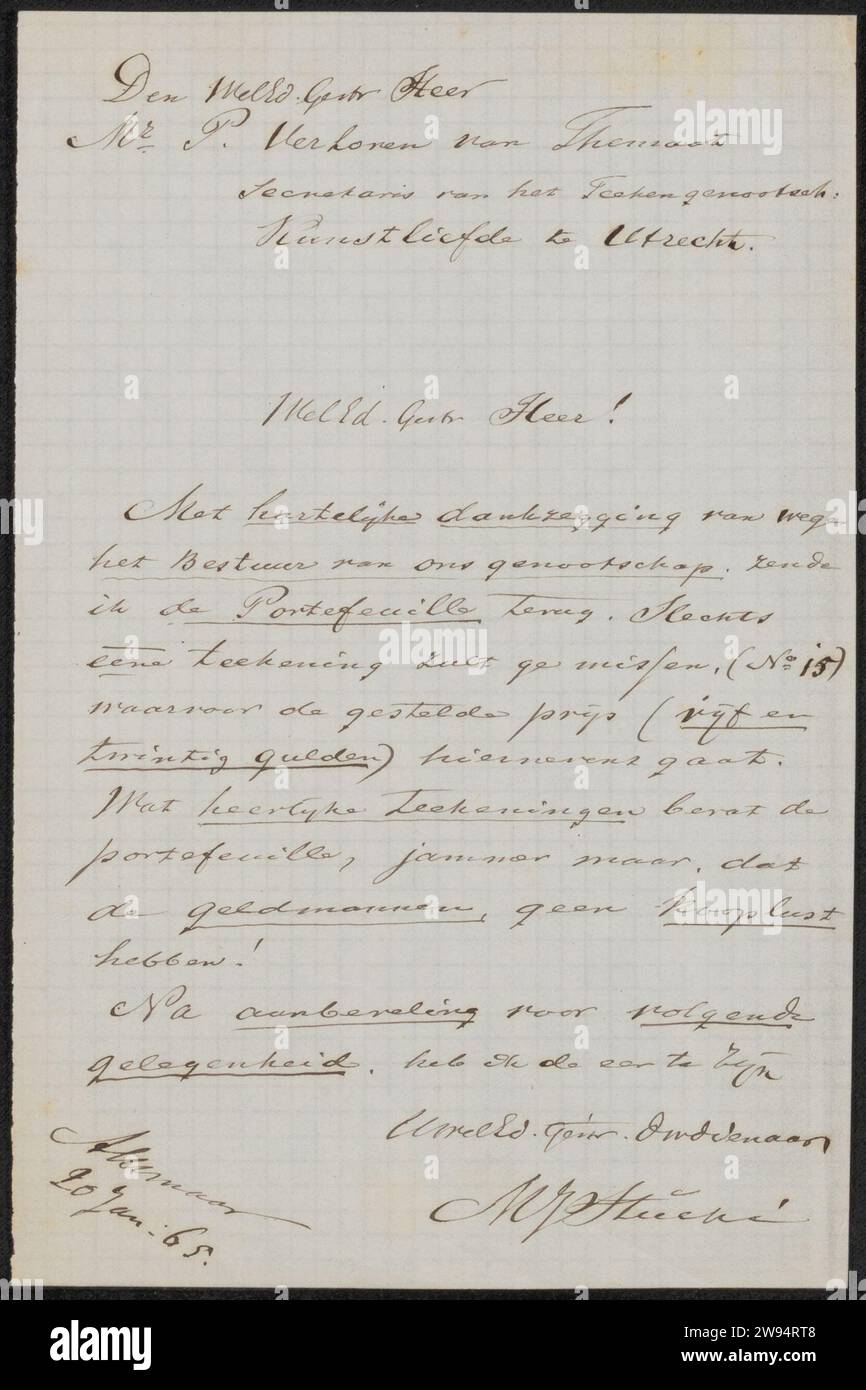 Den WelEd. Gestr Heer
Mr P. Verloren van Themaat
Secretaris van het Teekengenootsch:
Kunstliefde te Utrecht.
WelEd. Gestr Heer!
Met hartelijke dankzegging van wege
het Bestuur van ons genootschap. zende
ik de Portefeuille terug. Slechts
eene teekening zult ge missen, (No 15)
waarvoor de gestelde prijs (vijf en
twintig gulden) hiernevens gaat.
Wat heerlijke teekeningen bevat de
portefeuille, jammer maar, dat
de geldmannen, geen kooplust
hebben!
Na aanbeveling voor volgende
gelegenheid. heb ik de eer te zijn
UwelEd. Gestr. Dwdienaar
Alkmaar
20 Jan: 65.
MJ Stücki
alamy
Image ID: 2W94RT8
www.alamy.com